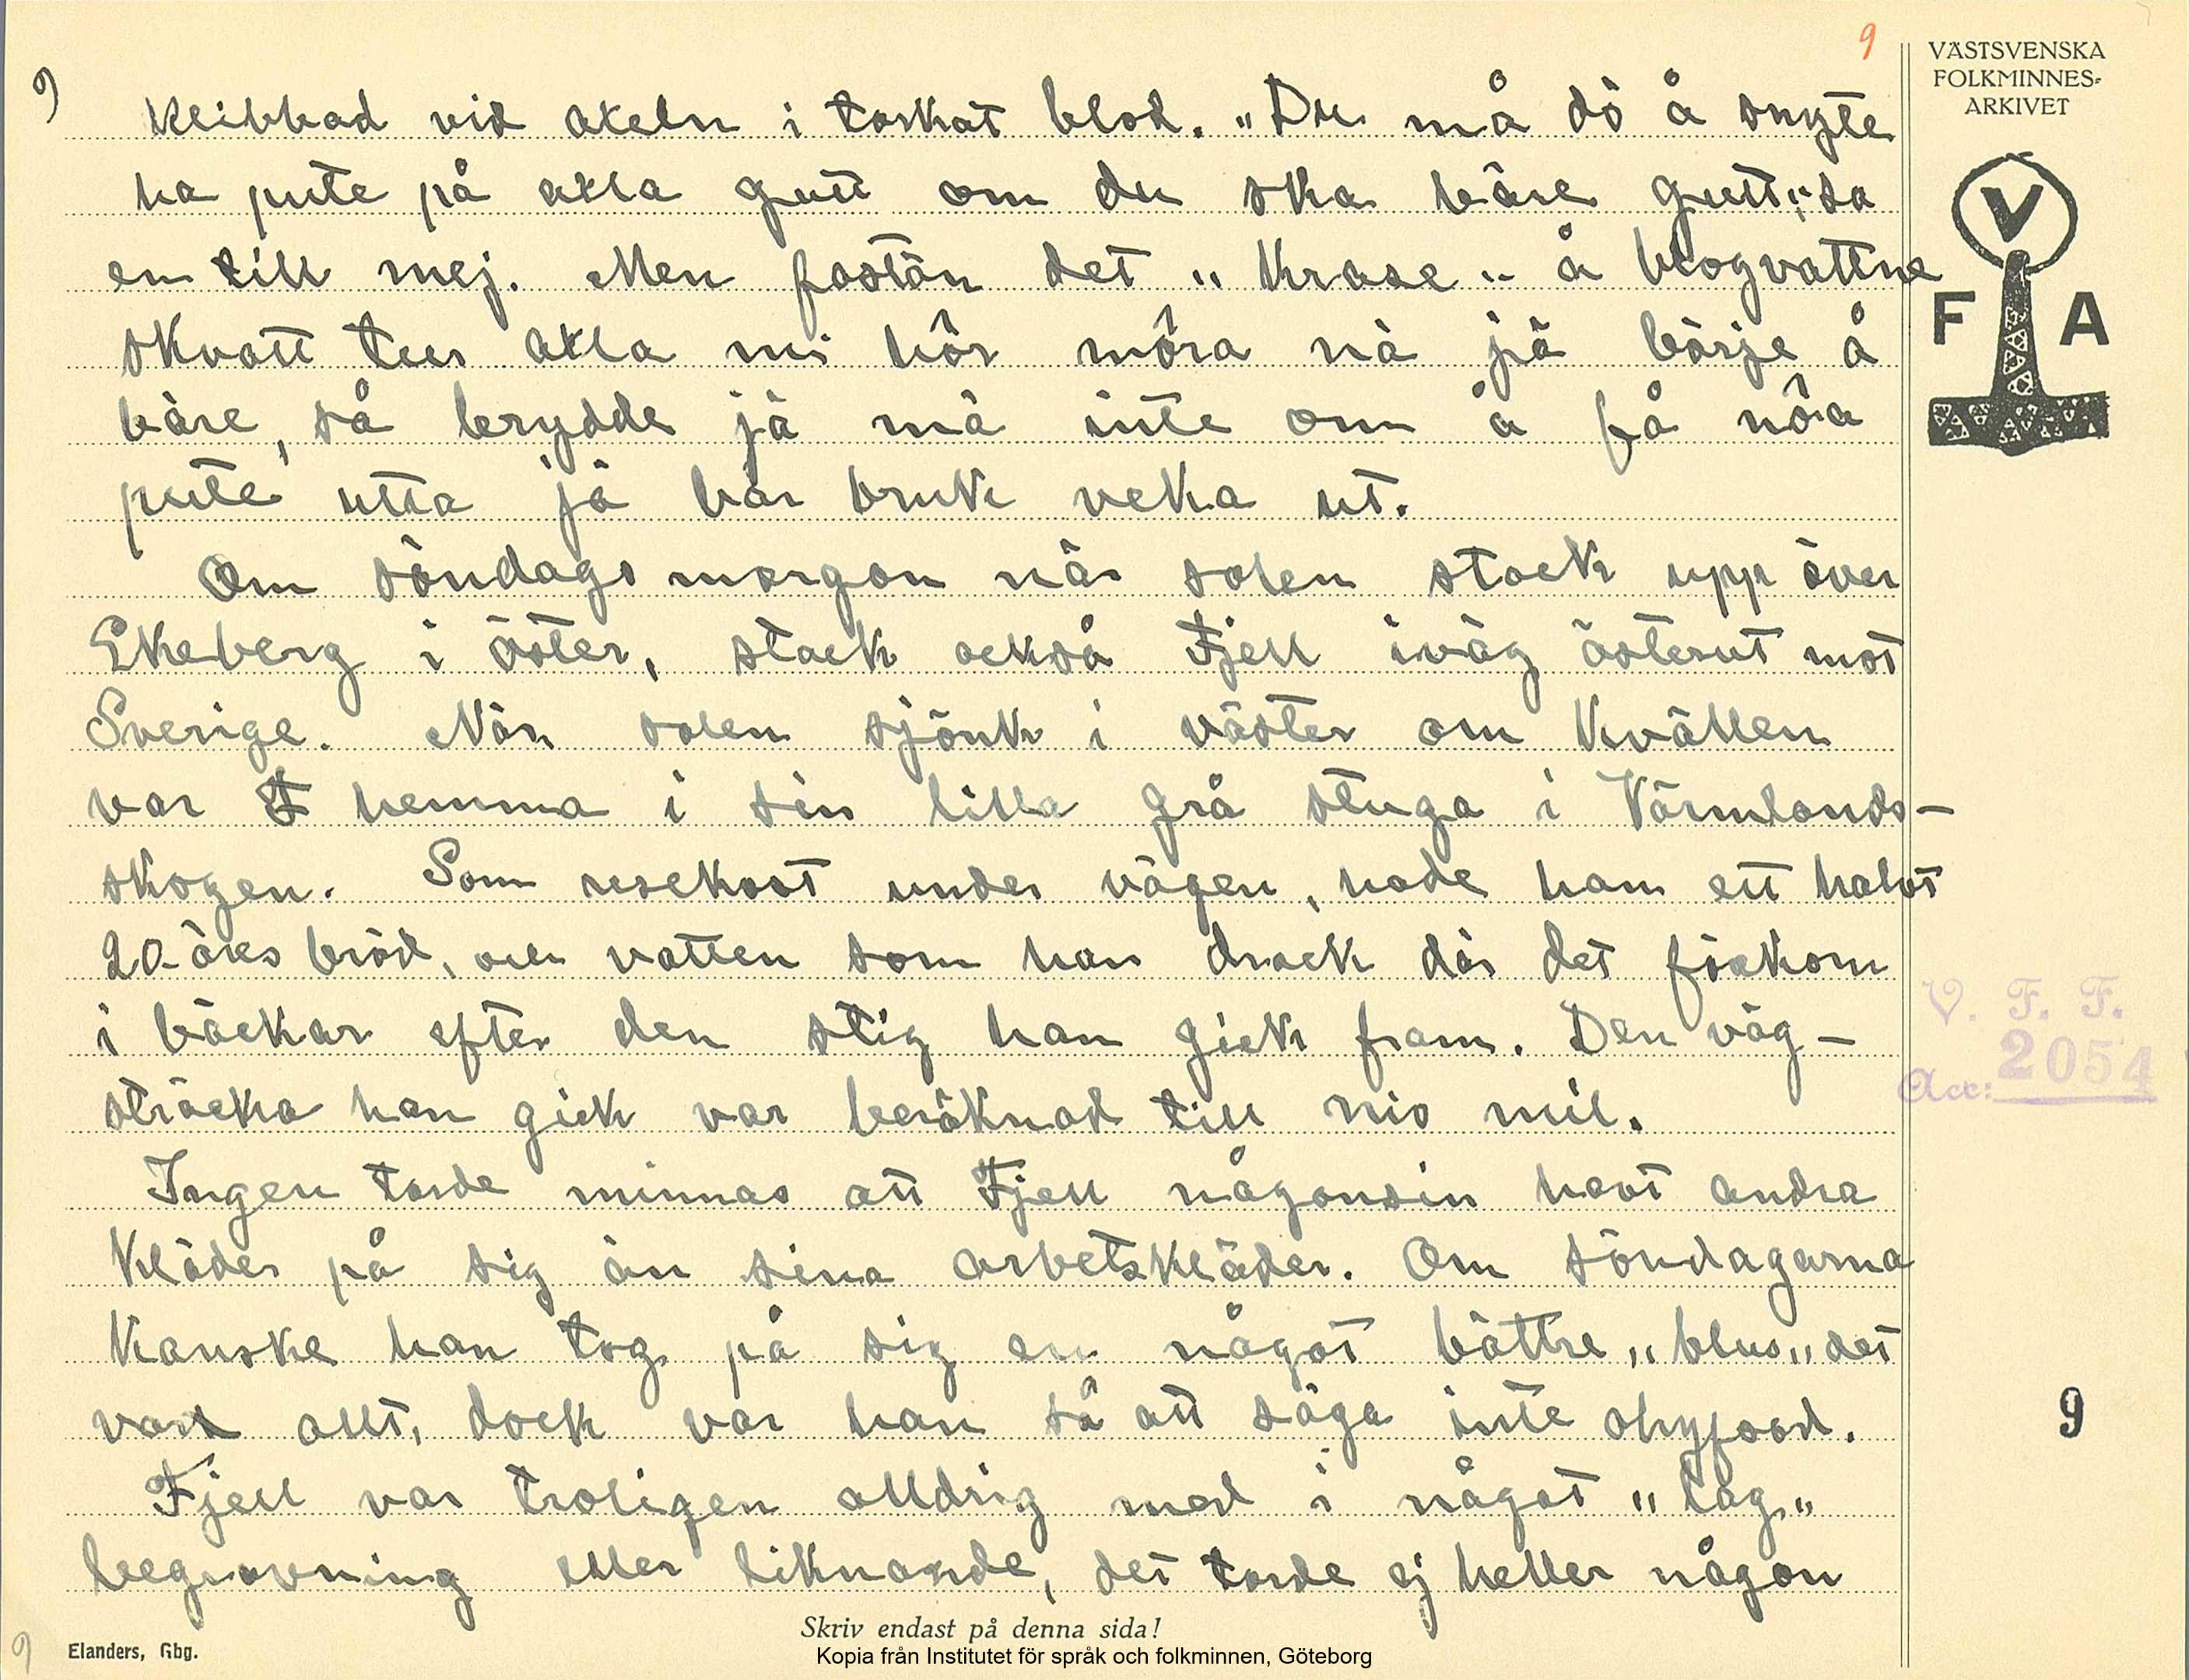 9
VÄSTSVENSKA
FOLKMINNES-
ARKIVET
V
F A
9)
klibbad vid axeln i torkat blod. "Du må dö å snyte
ha pute på axla gutt om du ska bäre gutt", sa
en till mej. Men fastän det "krase" å blogvattne
skvatt tur axla mi hôr môra nä jä börje å
bäre, så brydde jä mä inte om å få nôa
pute utta jä bär bruk veka ut.
Om söndags morgon när solen stack upp över
Ekeberg i öster, stack också Fjell iväg österut mot
Sverige. När solen sjönk i väster om kvällen
var F hemma i sin lilla grå stuga i Värmlands-
skogen. Som resekost under vägen, hade han ett halvt
20-öres bröd, och vatten som han drack där det förekom
i bäckar efter den stig han gick fram. Den väg-
sträcka han gick var beräknad till nio mil.
Ingen torde minnas att Fjell någonsin havt andra
kläder på sig än sina arbetskläder. Om söndagarna
kanske han tog på sig en något bättre "blus" det
var allt, dock var han så att säga inte ohyfsad.
Fjell var troligen alldrig med i något "lag"
begravning eller liknande, det torde ej heller någon
V. F. F.
Acc: 2054
9
Skriv endast på denna sida!
Elanders, Gbg.
Kopia från Institutet för språk och folkminnen, Göteborg
9